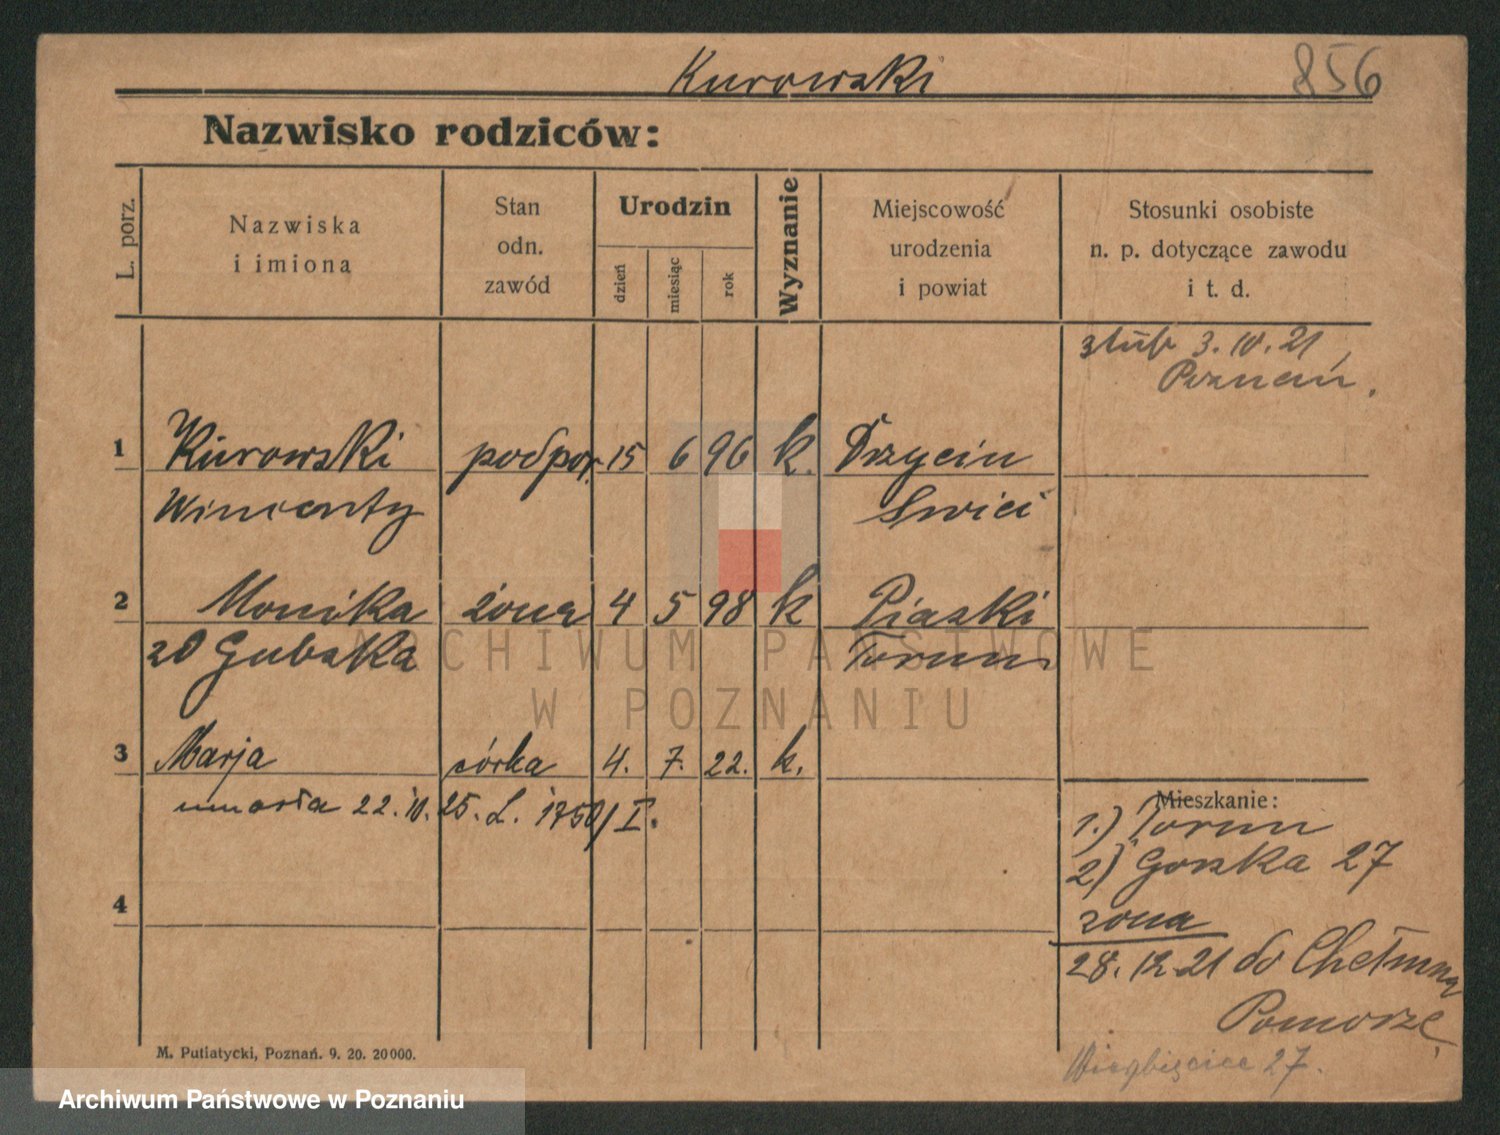 Kurowski
856
Nazwisko rodziców:
L. porz.
Nazwiska
i imiona
Stan
odn.
zawód
Urodzin
dzień
miesiąc
rok
Wyznanie
Miejscowość
urodzenia
i powiat
Stosunki osobiste
n. p. dotyczące zawodu
i t. d.
ślub 3. IV. 21,
Poznań.
1 Kurowski podpor. 15 6 96 k. Drzycin
Wincenty Swieci
2 Monika żona 4 5 98 k Piaski
zd Gubska Torun
3 Marja córka 4. 7. 22. k.
umarła 22. 10. 25. L. 1750/I.
4
Mieszkanie:
1.) Torun
2) Gorska 27
żona
28. 12 21 do Chełmna
Pomorze
Wierzbięcice 27.
M. Putiatycki, Poznań. 9. 20. 20000.
ARCHIWUM PAŃSTWOWE
W POZNANIU
Archiwum Państwowe w Poznaniu